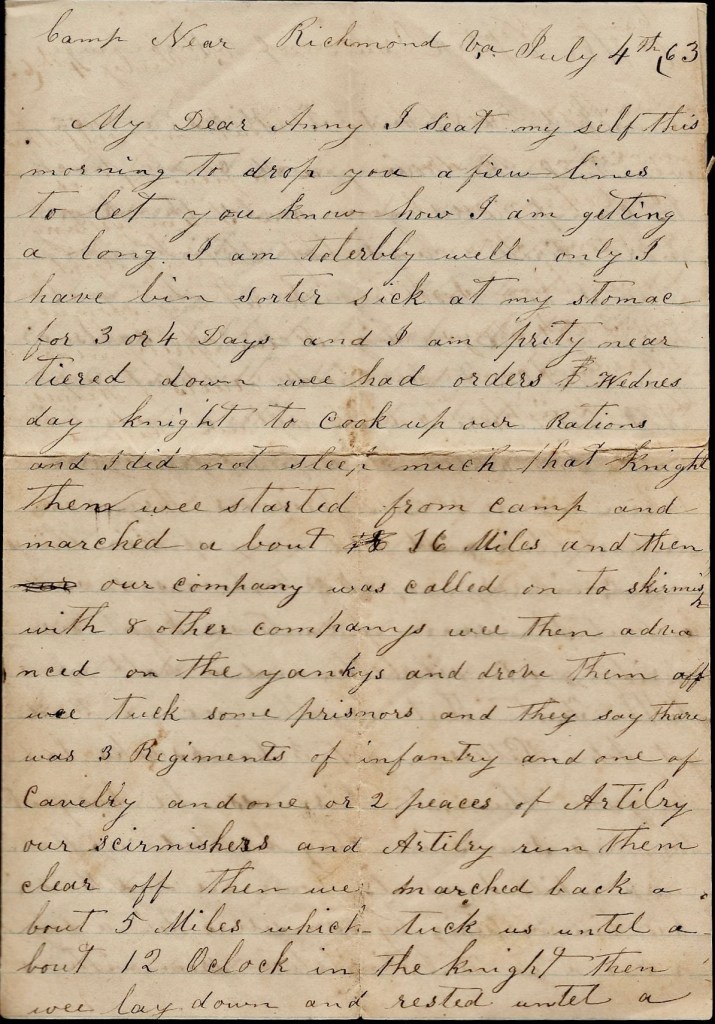 Camp Near Richmond Va. July 4th (63
My Dear Anny I seat my self this
morning to drop you a fiew lines
to let you know how I am getting
a long. I am tolerbly well only I
have bin sorter sick at my stomac
for 3 or 4 Days and I am prity near
tiered down wee had orders Wednes
day knight to cook up our Rations
and I did not sleep much that knight
then wee started from camp and
marched a bout 16 Miles and then
our company was called on to skirmish
with 8 other companys wee then adva
nced on the yankys and drove them off
wee tuck some prisnors and they say thare
was 3 Regiments of infantry and one of
Cavelry and one or 2 peaces of Artilry
our scirmishers and Artilry run them
clear off then we marched back a
bout 5 Miles which tuck us untel a
bout 12 Oclock in the knight then
wee lay down and rested untel a